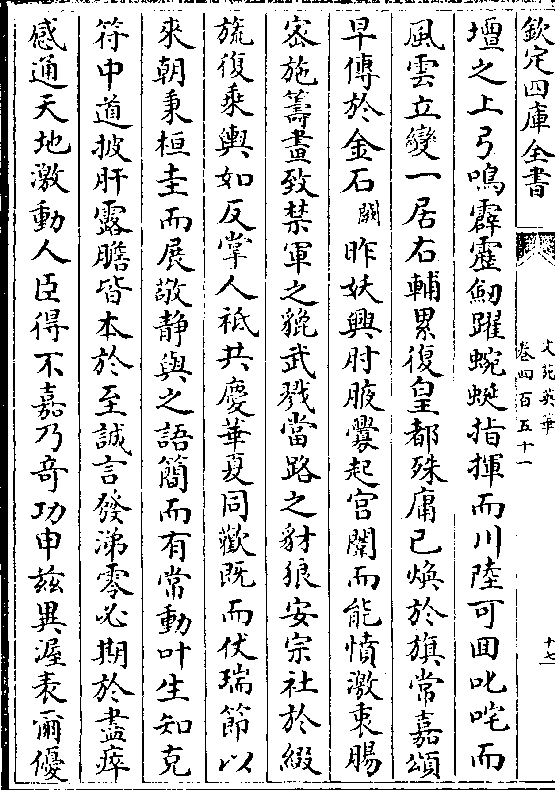 欽定四庫全書
文苑英華
卷四百五十一
十七
壇之上弓鳴霹靂劒躍蜿蜒指揮而川陸可回叱咤而
風雲立變一居右輔累復皇都殊庸已煥於旗常嘉頌
早傳於金石闕昨妖興肘腋釁起宫闈而能憤激衷腸
宻施籌畫致禁軍之貔武戮當路之豺狼安宗社於綴
旒復乘輿如反掌人祇共慶華夏同歡既而伏瑞節以
來朝秉桓圭而展敬静與之語簡而有常動叶生知克
符中道披肝露膽皆本於至誠言發涕零必期於盡瘁
感通天地激動人臣得不嘉乃竒功申兹異渥表爾優